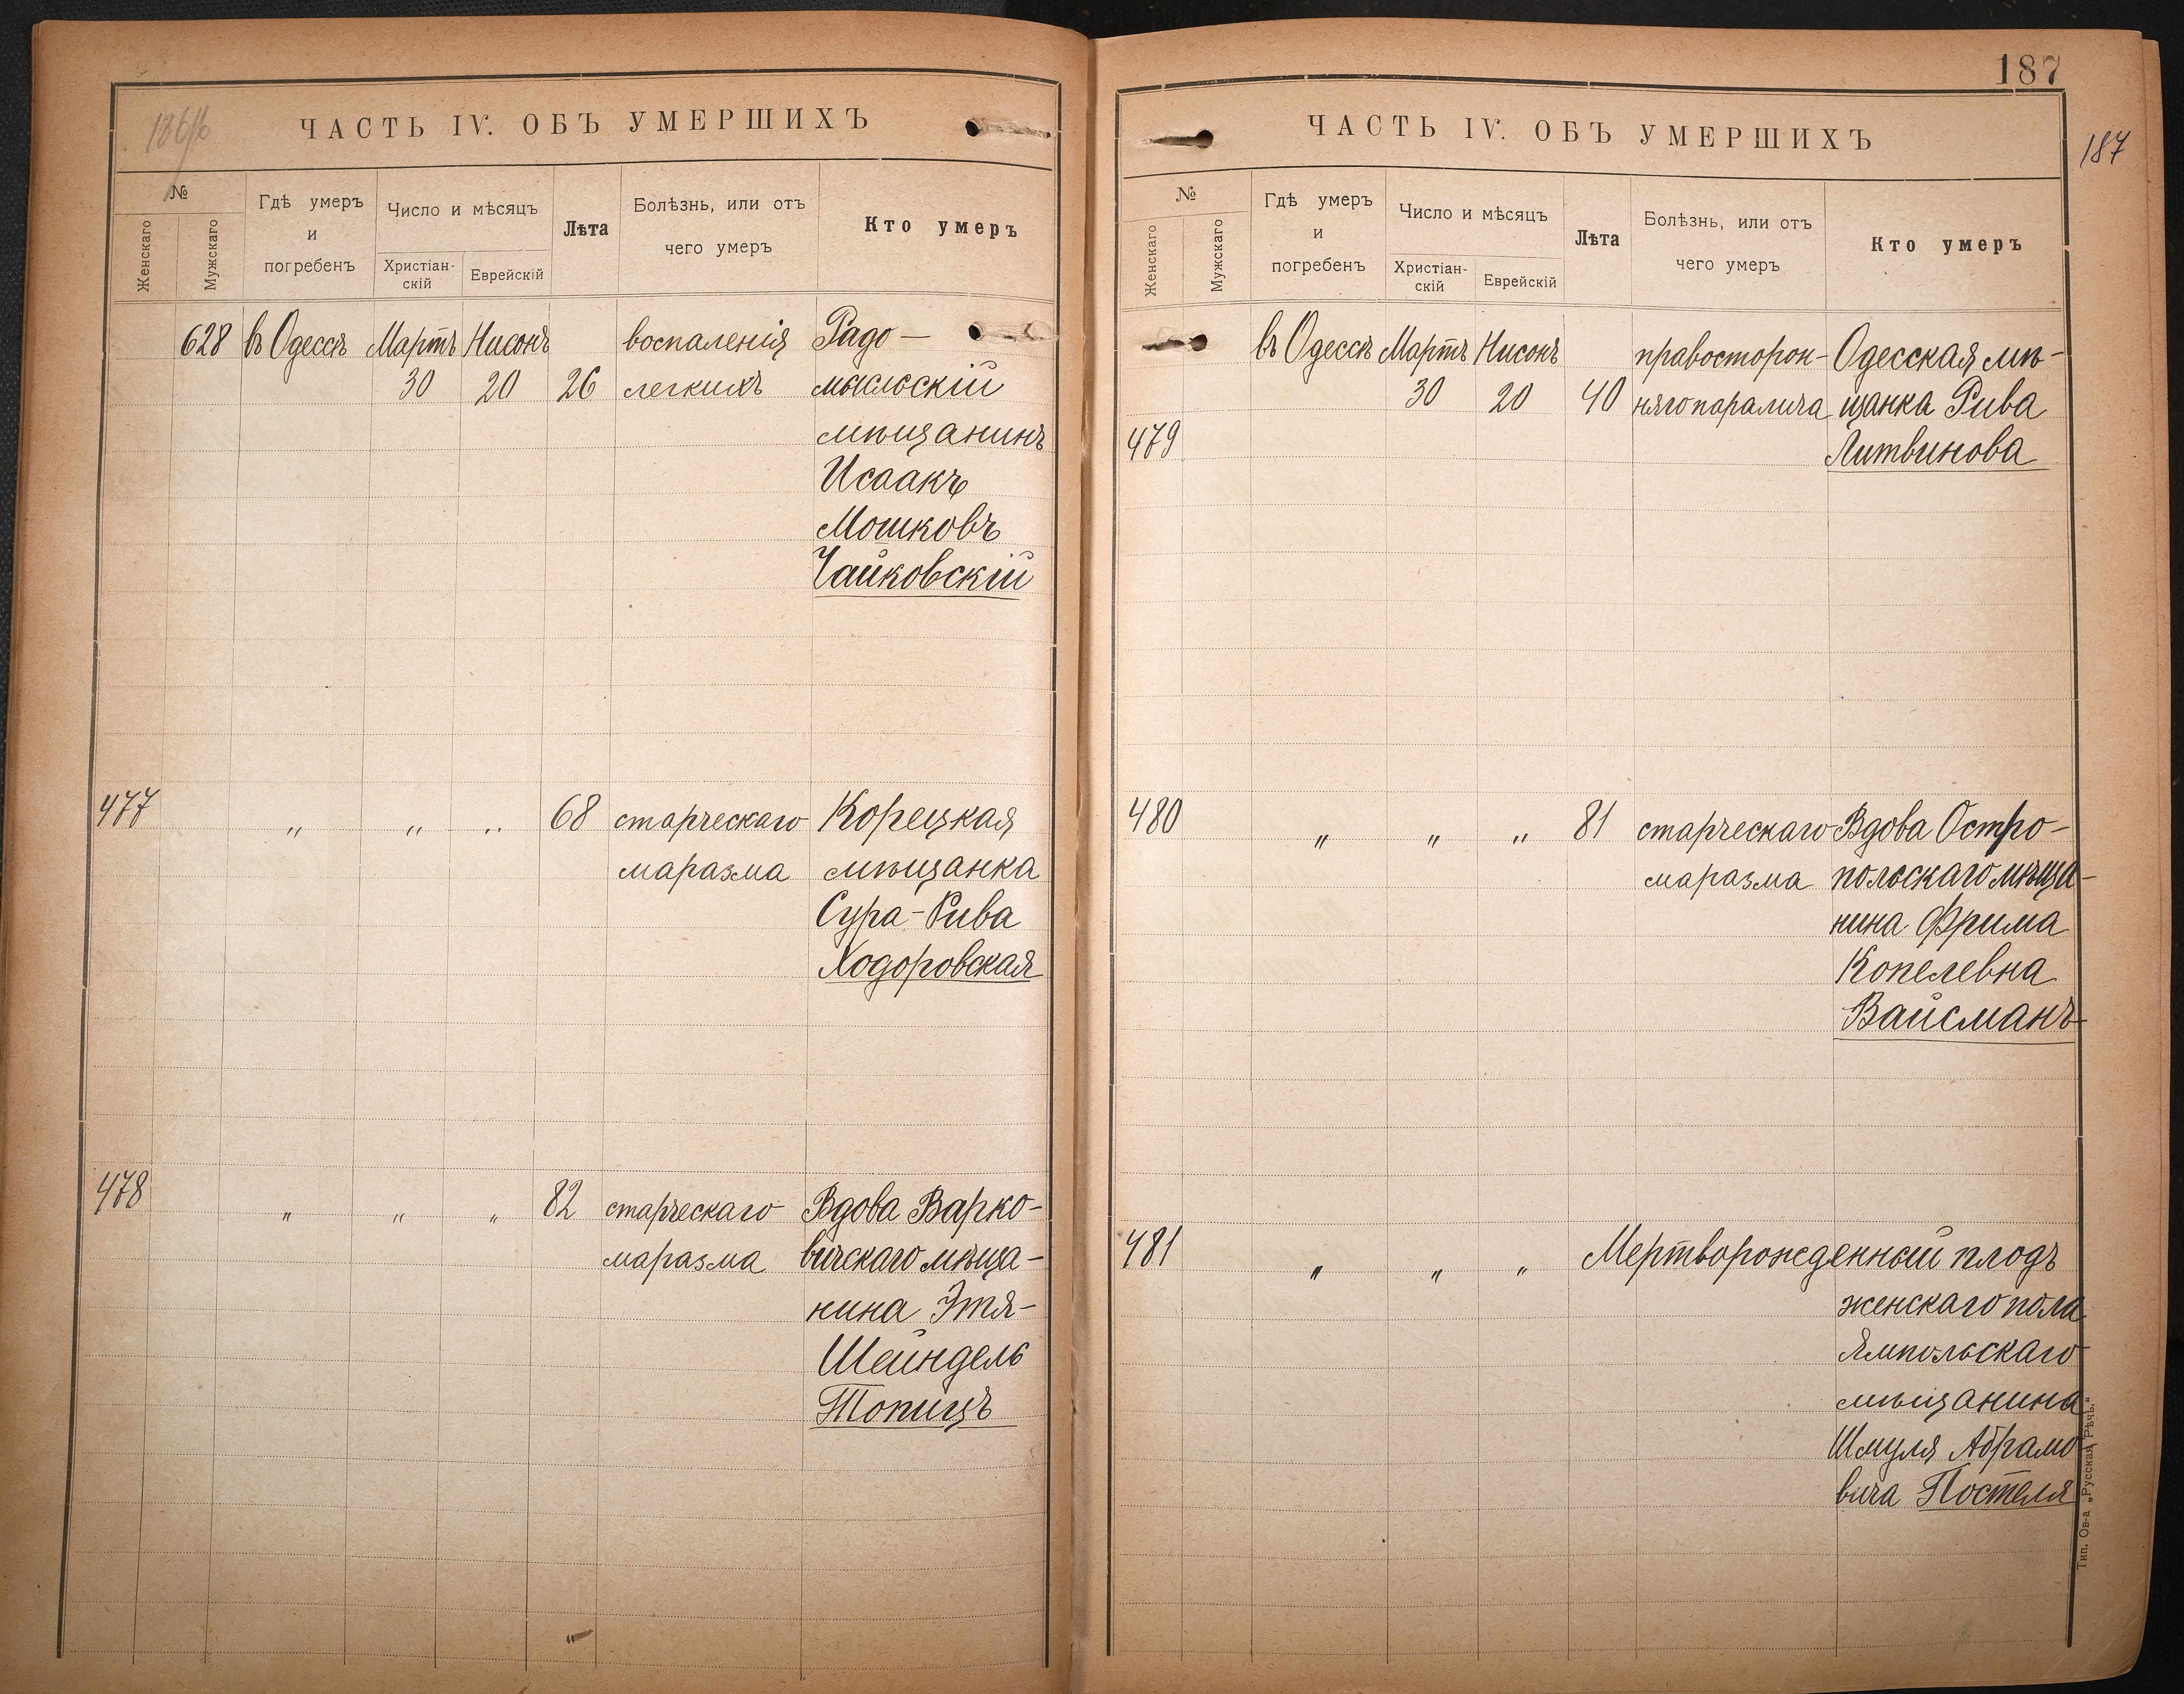 ЧАСТЬ IV. ОБЪ УМЕРШИХЪ
№
Женскаго
Мужскаго
Гдѣ умеръ
и
погребенъ
Число и мѣсяцъ
Христіан-
скій
Еврейскій
Лѣта
Болѣзнь, или отъ
чего умеръ
Кто умеръ
628 въ Одессѣ Мартъ Нисонъ воспаленія Радо—
30 20 26 легкихъ мысльскій
мѣщанинъ
Исаакъ
Мошковъ
Чайковскій
477 „ „ „ 68 старческаго Корецкая
маразма мѣщанка
Сура-Рива
Ходоровская
478 „ „ „ 82 старческаго Вдова Варко-
маразма вичскаго мѣща-
нина Этя-
Шейндель
Топицъ
187
187
ЧАСТЬ IV. ОБЪ УМЕРШИХЪ
№
Женскаго
Мужскаго
Гдѣ умеръ
и
погребенъ
Число и мѣсяцъ
Христіан-
скій
Еврейскій
Лѣта
Болѣзнь, или отъ
чего умеръ
Кто умеръ
въ Одессѣ Мартъ Нисонъ правосторон- Одесская мѣ-
30 20 40 няго паралича щанка Рива
479 Литвинова
480 „ „ „ 81 старческаго Вдова Остро-
маразма польскаго мѣща-
нина Фрима
Копелевна
Вайсманъ
481 „ „ „ Мертворожденный плодъ
женскаго пола
Ямпольскаго
мѣщанина
Шмуля Абрамо
вича Постеля
Тип. Ов-а „Русская Рѣчь."